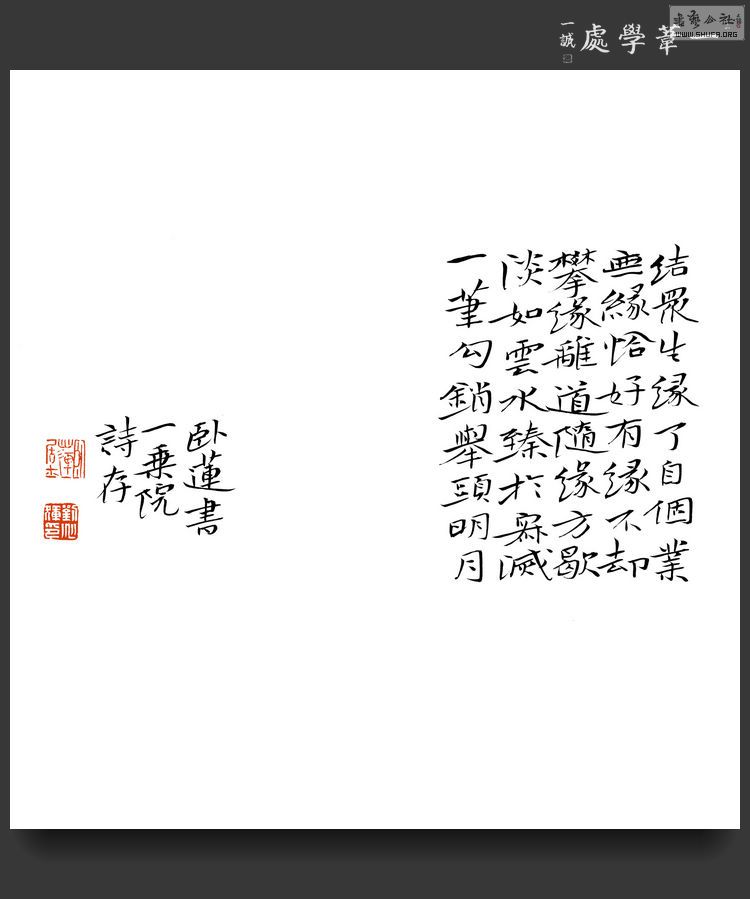 一葦學處
一誠
書藝公社
WWW.SHUFA.ORG
结眾生緣了自個業
無緣恰好有缘不却
攀缘離道隨缘方歇
淡如雲水臻於寂滅
一筆勾銷舉頭明月
卧蓮書
一乗院
詩存